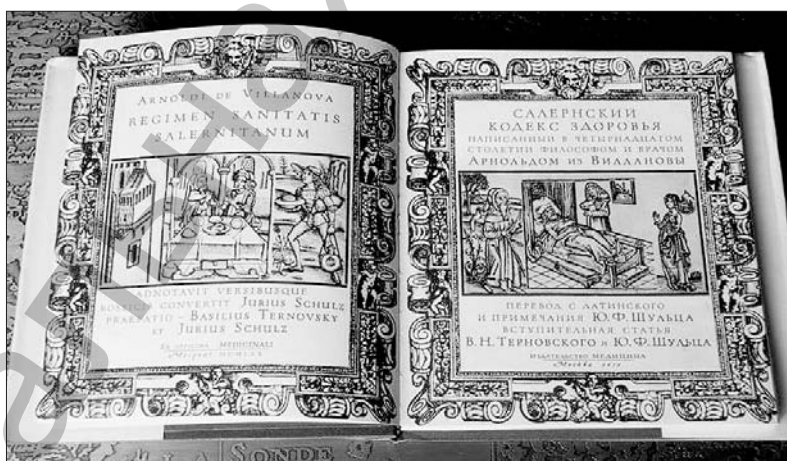 ARNOLDI DE VILLANOVA
REGIMEN SANITATIS
SALERNITANUM
ADNOTAVIT VERSIBUSQUE
ROSSICIS CONVERTIT JURIUS SCHULZ
PRAEFATIO - BASILIUS TERNOVSKY
ET JURIUS SCHULZ
MEDICINALI
САЛЕРНСКИЙ
КОДЕКС ЗДОРОВЬЯ
НАПИСАННЫЙ В ЧЕТЫРНАДЦАТОМ
СТОЛЕТИИ ФИЛОСОФОМ И ВРАЧОМ
АРНОЛЬДОМ ИЗ ВИЛЛАНОВЫ
ПЕРЕВОД С ЛАТИНСКОГО
И ПРИМЕЧАНИЯ Ю.Ф.ШУЛЬЦА
ВСТУПИТЕЛЬНАЯ СТАТЬЯ
В.Н.ТЕРНОВСКОГО и Ю.Ф.ШУЛЬЦА
ИЗДАТЕЛЬСТВО МЕДИЦИНА
Москва
SONDE